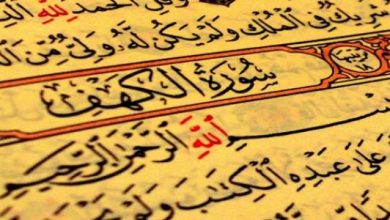 وَقُلِ الْحَمْدُ لِلَّهِ
شَرِيكٌ فِي الْمُلْكِ وَلَمْ يَكُن لَّهُ وَلِيٌّ مِّنَ
سُورَةُ الْكَهْفِ
اللَّهِ الرَّحْمَٰنِ الرَّحِيمِ
عَلَىٰ عَبْدِهِ الْكِتَٰبَ وَلَمْ